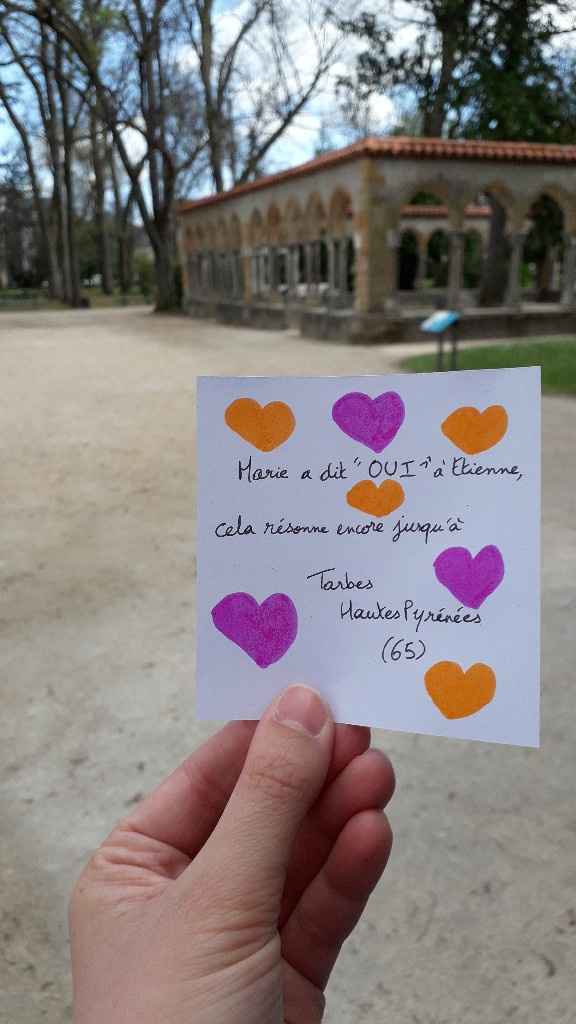 Marie a dit "OUI" à Etienne,
cela résonne encore jusqu'à
Tarbes
Hautes Pyrénées
(65)